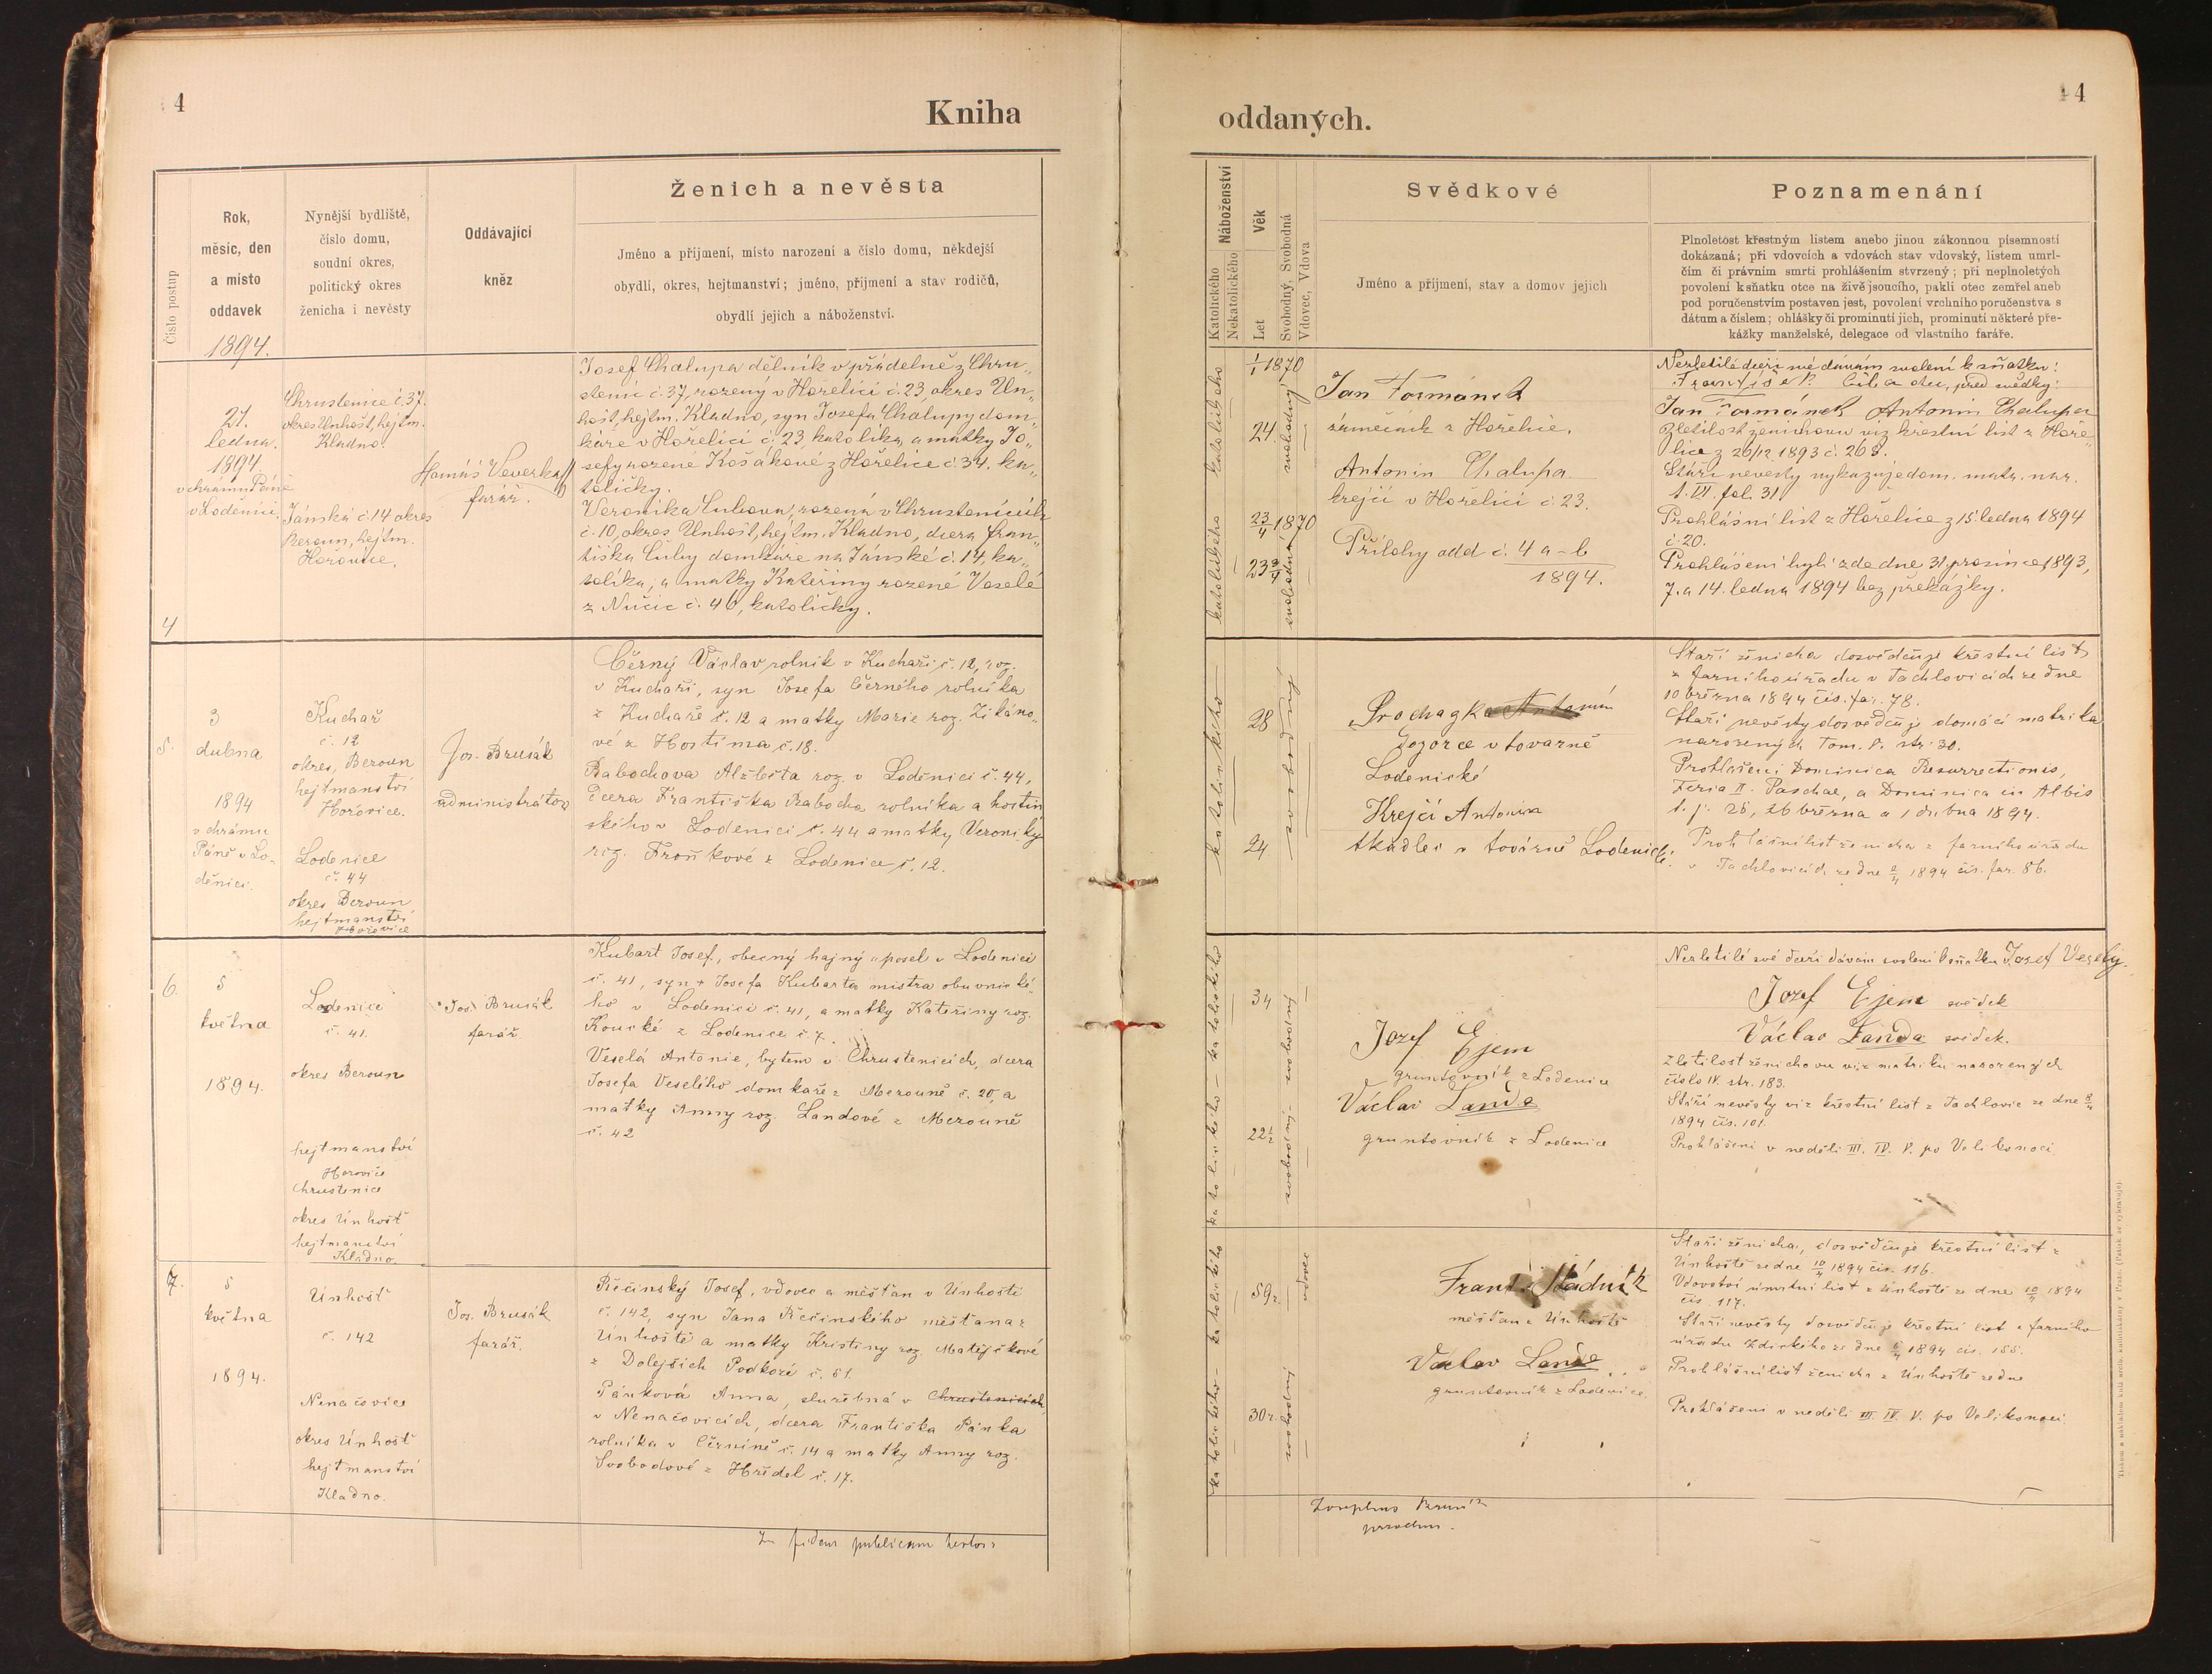 4
Kniha
Číslo postup
Rok,
měsíc, den
a místo
oddavek
1894.
Nynější bydliště,
číslo domu,
soudní okres,
politický okres
ženicha i nevěsty
Oddávající
kněz
Ženich a nevěsta
Jméno a přijmení, místo narození a číslo domu, někdejší
obydlí, okres, hejtmanství; jméno, přijmení a stav rodičů,
obydlí jejich a náboženství.
4
21.
ledna.
1894
v chrámu Páně
v Loděnici.
Chrustenice č. 37.
okres Unhošť, hejtm.
Kladno.
Jánská č. 14 okres
Beroun, hejtm.
Hořovice.
Veverka
farář.
Josef Chalupa dělník v přádelně z Chru„
stenic č. 37, rozený v Hořelici č. 23, okres Un„
hošť, hejtm. Kladno, syn Josefa Chalupy dom„
káře v Hořelici č. 23, katolíka, a matky Jo„
sefy rozené Košákové z Hořelice č. 34. ka„
toličky.
Veronika Čubova, rozená v Chrustenicích
č. 10, okres Unhošť, hejtm. Kladno, dcera fran„
tiška Čuby domkáře na Jánské č. 14, ka„
tolíka, a matky Kateřiny rozené Veselé
z Nučic č. 46, katoličky.
5.
3
dubna
1894
v chrámu
Páně v Lo-
děnici.
Kuchař
č. 12
okres, Beroun
hejtmanství
Hořovice.
Lodenice
č. 44
okres Beroun
hejtmanství
Hořovice
Jos. Brusák
administrátor
Černý Václav rolník v Kuchaři č. 12, roz.
v Kuchaři, syn Josefa Černého rolníka
z Kuchaře č. 12 a matky Marie roz. Zikáno-
vé z Hostíma č. 18.
Babochova Alžběta roz. v Loděnici č. 44,
dcera Františka Babocha rolníka a hostin
ského v Loděnici č. 44 a matky Veroniky
roz. Froňkové z Lodenice č. 12.
6.
5
května
1894.
Lodenice
č. 41.
okres Beroun
hejtmanství
Hořovice
Chrustenice
okres Únhošť
hejtmanství
Kladno.
Jos. Brusák
farář.
Kubart Josef, obecný hajný a posel v Lodenici
č. 41, syn + Josefa Kubarta mistra obuvnické-
ho v Lodenici č. 41, a matky Kateřiny roz.
Koucké z Lodenice č. 7.
Veselá Antonie, bytem v Chrustenicích, dcera
Josefa Veselého domkaře z Mezouně č. 20, a
matky Anny roz. Landové z Mezouně
č. 42
7.
5
května
1894.
Unhošť
č. 142
Nenačovice
okres Únhošť
hejtmanství
Kladno.
Jos. Brusák
farář.
Řečinský Josef, vdovec a měšťan v Unhošti
č. 142, syn Jana Řečinského měšťana z
Unhoště a matky Kristiny roz. Matějčkové
z Dolejších Podkozí č. 51.
Pánková Anna, služebná v Chrustenicích,
v Nenačovicích, dcera Františka Pánka
rolníka v Černíně č. 14 a matky Anny roz.
Svobodové z Hředel č. 17.
In fidem publicam
4
oddaných.
Náboženství
Katolického
Nekatolického
Věk
Let
Svobodný, Svobodná
Vdovec, Vdova
Svědkové
Jméno a přijmení, stav a domov jejich
Poznamenání
Plnoletost křestným listem anebo jinou zákonnou písemností
dokázaná; při vdovcích a vdovách stav vdovský, listem umrl-
čím či právním smrti prohlášením stvrzený; při neplnoletých
povolení k sňatku otce na živě jsoucího, pakli otec zemřel aneb
pod poručenstvím postaven jest, povolení vrchního poručenstva s
dátum a číslem; ohlášky či prominutí jich, prominutí některé pře-
kážky manželské, delegace od vlastního faráře.
katolického
katolického
1/1 1870
24.
23/4 1870
23 3/4
svobodný
svobodná
Jan Formánek
zámečník z Hořelic.
Antonin Chalupa.
krejčí v Hořelici č. 23.
Přílohy odd č. 4 a-b
1894.
Nezletilé dceři mé dávám svolení k sňatku:
František Čuba otec, před svědky:
Jan Formánek Antonin Chalupa
Zletilost ženichovu viz křestní list z Hoře„
lice z 26/12 1893 č. 268.
Stáří nevěsty vykazuje dom. matr. nar.
t. VI. fol. 31
Prohlášní list z Hořelice z 15. ledna 1894
č. 20.
Prohlášení byli zde dne 31. prosince 1893,
7. a 14. ledna 1894 bez překážky.
katolického
28
24.
svobodný
Prochazka Antonín
dozorce v továrně
Lodenické
Krejčí Antonin
tkadlec v továrně Lodenické.
Staří ženicha dosvědčuje křestní list
z farního úřadu v Tachlovicích ze dne
10 března 1894 čís. far. 78.
Staří nevěsty dosvědčuje domácí matrika
narozených Tom. V. str. 30.
Prohlášení Dominica Resurrectionis,
Feria II. Paschae, a Dominica in Albis
t. j. 25, 26 března a 1 dubna 1894.
Prohlášní list ženicha z farního úřadu
v Tachlovicích ze dne 2/4 1894 čís. far. 86.
katolického - katolického
34
22 1/2
svobodný - svobodný
Jozef Ejem
gruntovník z Lodenice
Václav Landa
gruntovník z Lodenice
Nezletilé své dceři dávám svolení k sňatku Josef Veselý.
Jozef Ejem svědek
Václav Landa svědek.
Zletilost ženichovu viz matriku narozených
číslo IV. str. 183.
Stáří nevěsty viz křestní list z Tachlovic ze dne 8/4
1894 čís. 101.
Prohlášeni v neděli III. IV. V. po Velikonoci
katolického - katolického
59 r.
30 r.
vdovec
svobodný
Frant. Stádník
měšťan z Únhoště
Vaclav Landa
gruntovník z Lodenice.
Staří ženicha, dosvědčuje křestní list z
Únhoště ze dne 10/4 1894 čís. 116.
Vdovství úmrtní list z Unhoště ze dne 10/4 1894
čís. 117.
Staří nevěsty dosvědčuje křestní list z farního
úřadu Zdického ze dne 1894 čís. 155.
Prohlášní list ženicha z Únhoště ze dne
Prohlášeni v neděli III. IV. V. po Velikonoci.
Josephus Brusák
parochus.